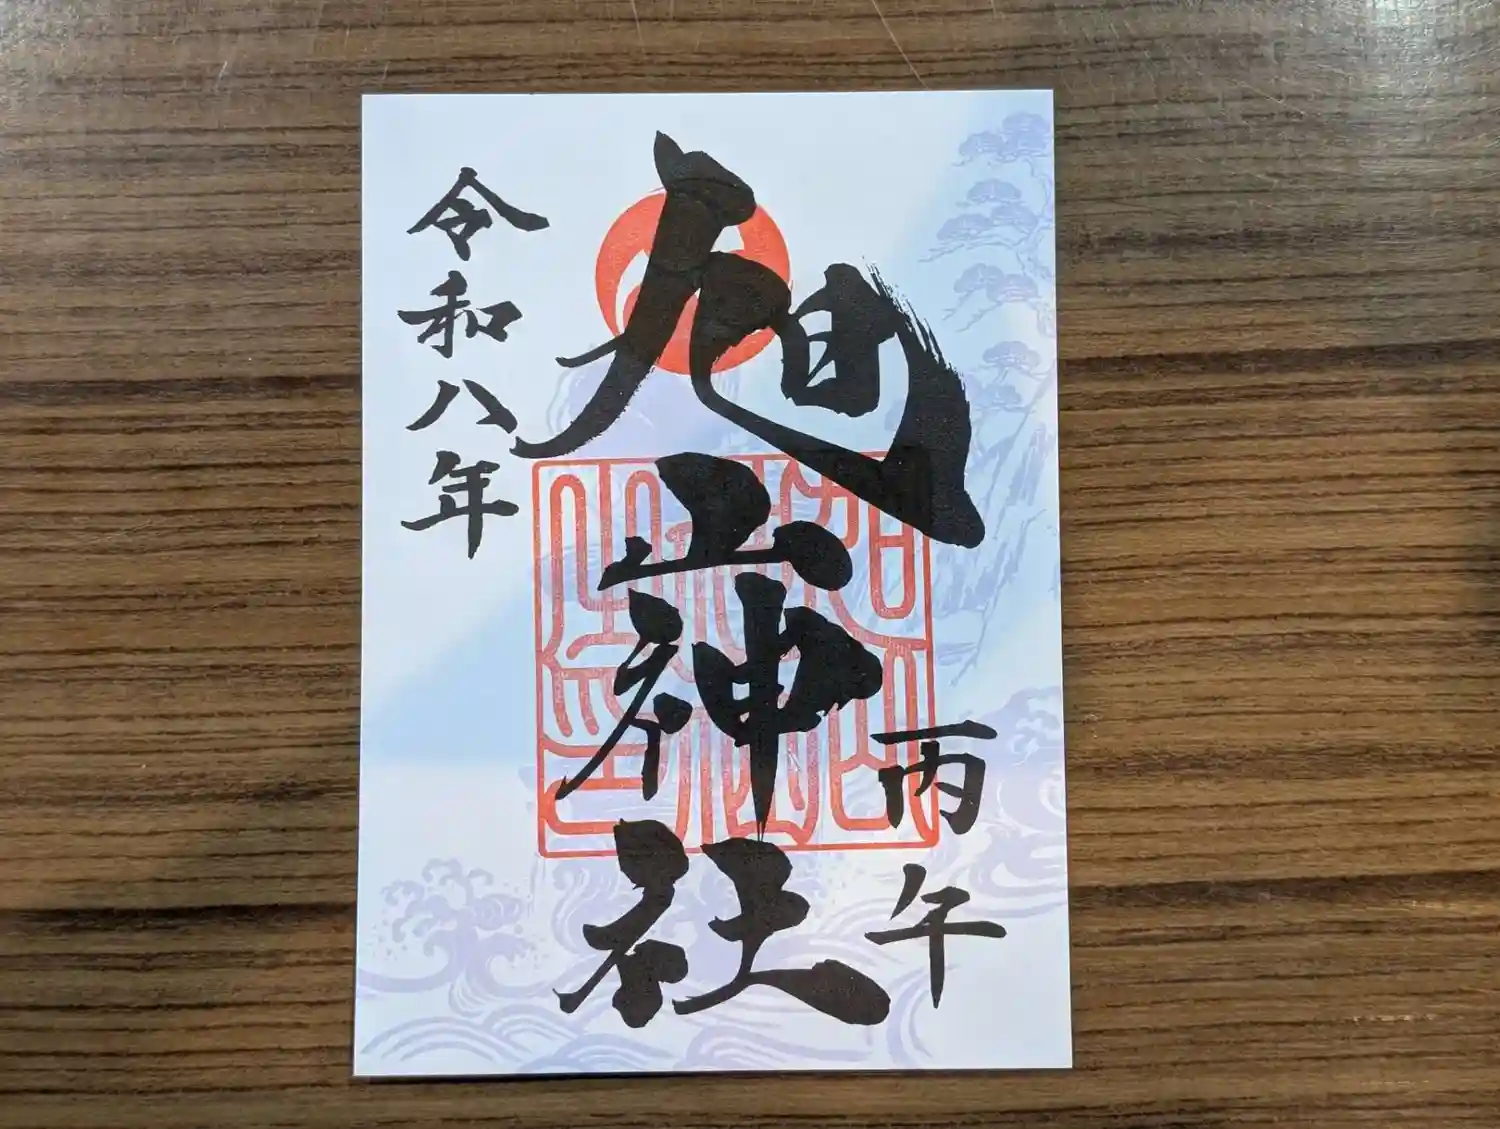 丙午
旭山神社
令和八年